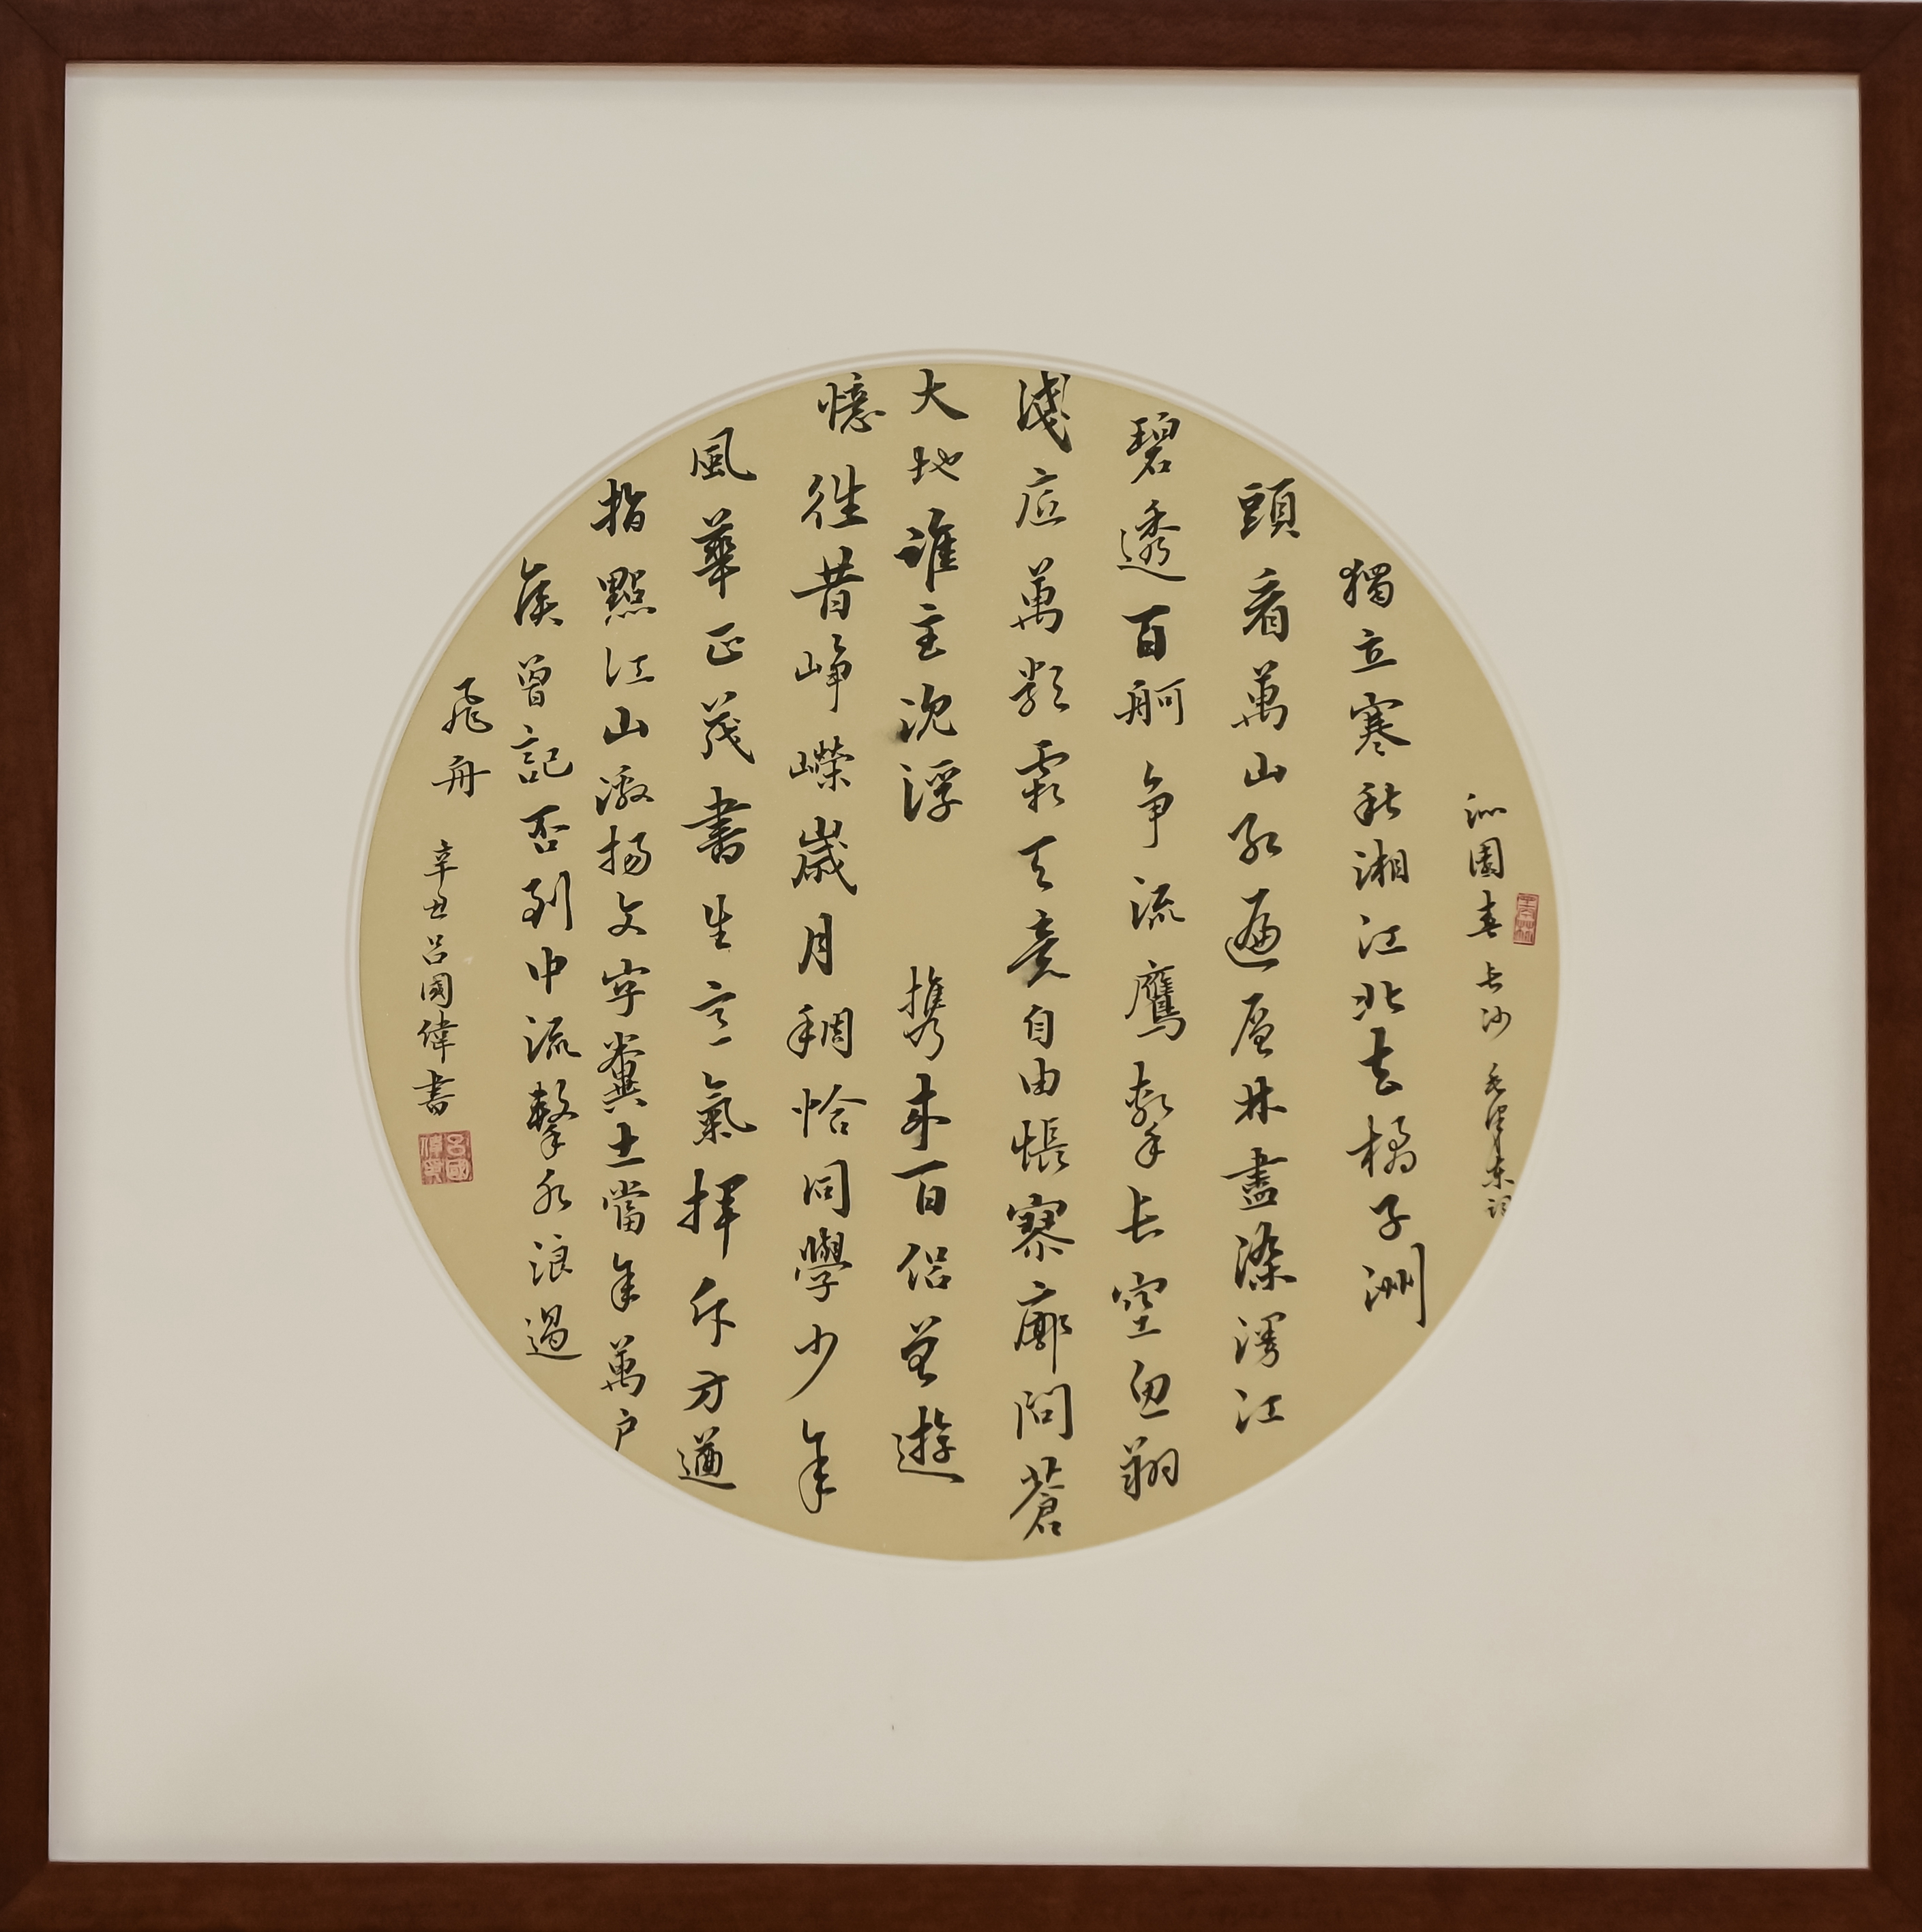 沁園春 長沙 毛澤東詞
獨立寒秋湘江北去橘子洲
頭看萬山紅遍層林盡染漫江
碧透百舸爭流鷹擊長空魚翔
淺底萬類霜天競自由悵寥廓問蒼
茫大地誰主沈浮 攜來百侶曾遊
憶往昔崢嶸歲月稠恰同學少年
風華正茂書生意氣揮斥方遒
指點江山激揚文字糞土當年萬戶
侯曾記否到中流擊水浪遏
飛舟 辛丑呂國偉書
呂國偉